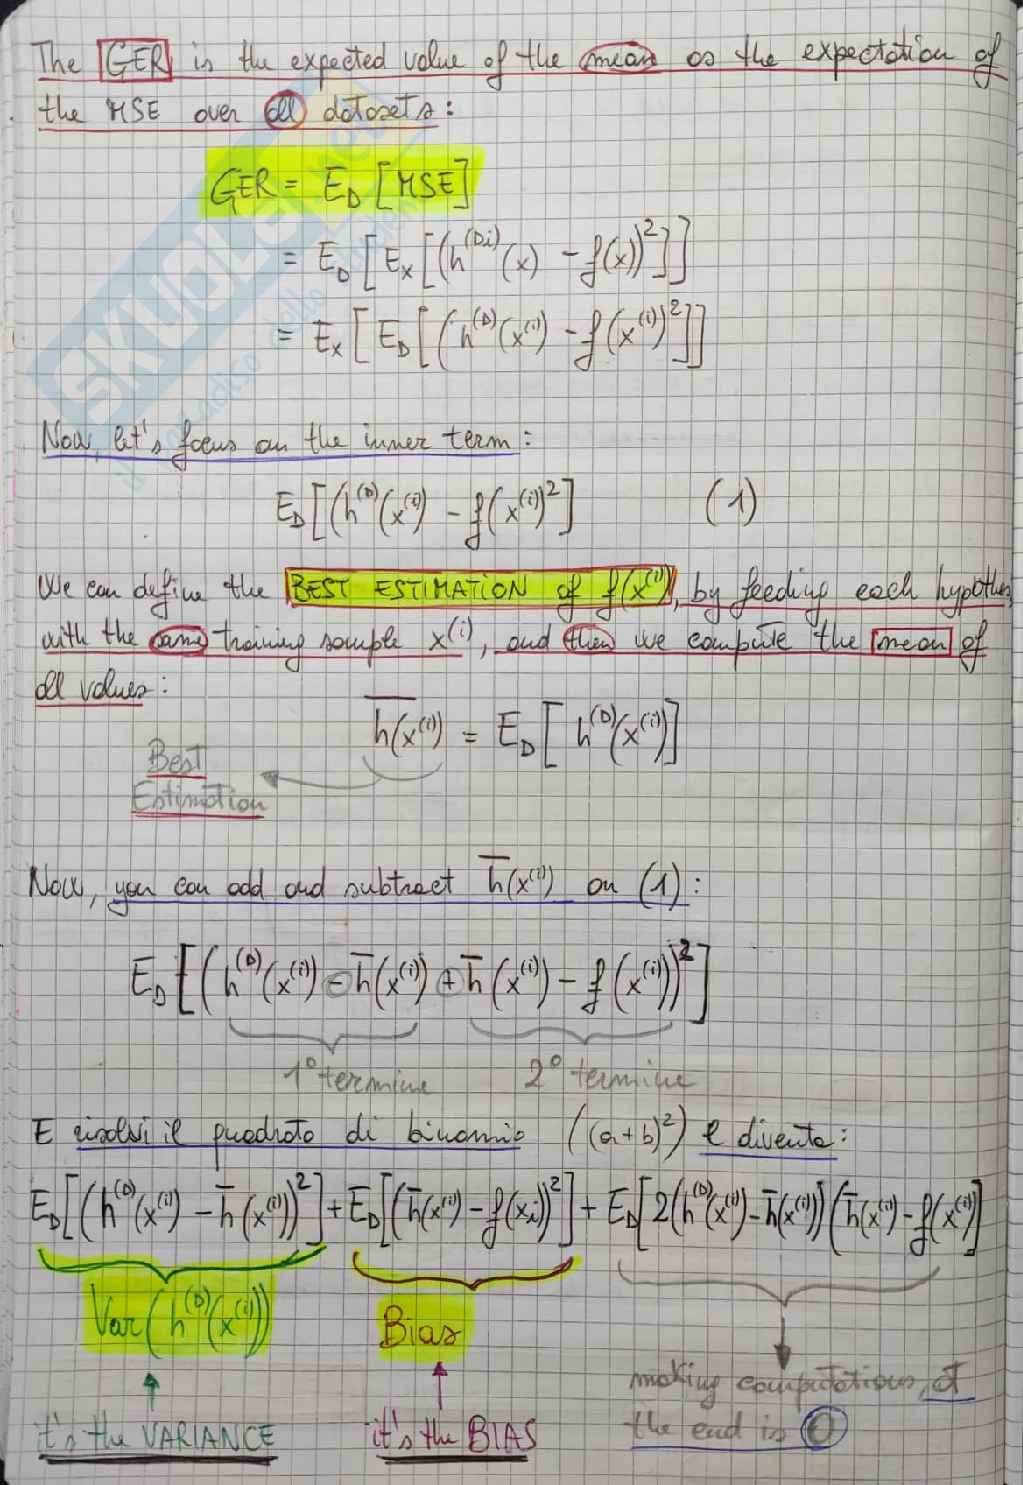 The GER is the expected value of the mean as the expectation of
the MSE over all datasets:
GER = E_D [MSE]
= E_D [E_x [(h^(Di)(x) - f(x))^2]]
= E_x [E_D [(h^(D)(x^(i)) - f(x^(i))^2]]
Now, let's focus on the inner term:
E_D [(h^(D)(x^(i)) - f(x^(i))^2] (1)
We can define the BEST ESTIMATION of f(x^(i)), by feeding each hypothes
with the same training sample x^(i), and then we compute the mean of
all values:
h̅(x^(i)) = E_D [h^(D)(x^(i))]
Best
Estimation
Now, you can add and subtract h̅(x^(i)) on (1):
E_D [(h^(D)(x^(i)) - h̅(x^(i)) + h̅(x^(i)) - f(x^(i)))^2]
1° termine 2° termine
E risolvi il quadrato di binomio ((a+b)^2) e diventa:
E_D [(h^(D)(x^(i)) - h̅(x^(i)))^2] + E_D [(h̅(x^(i)) - f(x_i))^2] + E_D [2(h^(D)(x^(i)) - h̅(x^(i)))(h̅(x^(i)) - f(x^(i))]
Var(h^(D)(x^(i))) Bias
making computations, at
the end is 0
it's the VARIANCE it's the BIAS
SKUOLA.net